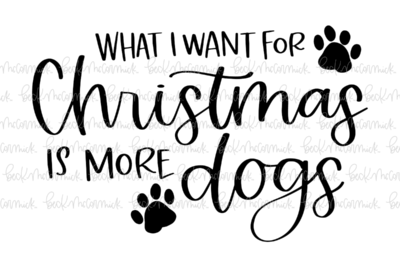 WHAT I WANT FOR
Christmas
IS MORE
dogs